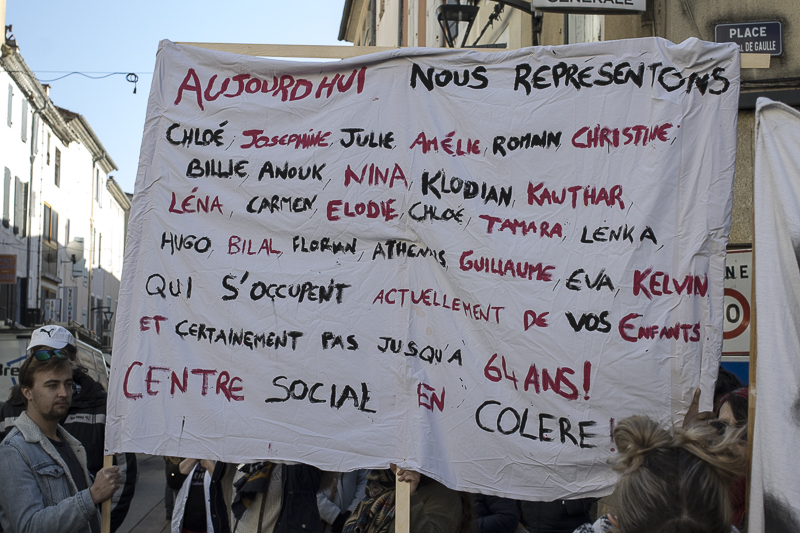 GÉNÉRALE
PLACE
AL DE GAULLE
AUJOURD'HUI NOUS REPRÉSENTONS
CHLOÉ, JOSEPHINE, JULIE, AMÉLIE, ROMAIN, CHRISTINE,
BILLIE, ANOUK, NINA, KLODIAN, KAWTHAR,
LÉNA, CARMEN, ELODIE, CHLOÉ, TAMARA, LENKA,
HUGO, BILAL, FLORIAN, ATHENAIS, GUILLAUME, EVA, KELVIN
QUI S'OCCUPENT ACTUELLEMENT DE VOS ENFANTS
ET CERTAINEMENT PAS JUSQU'A 64 ANS!
CENTRE SOCIAL EN COLERE!